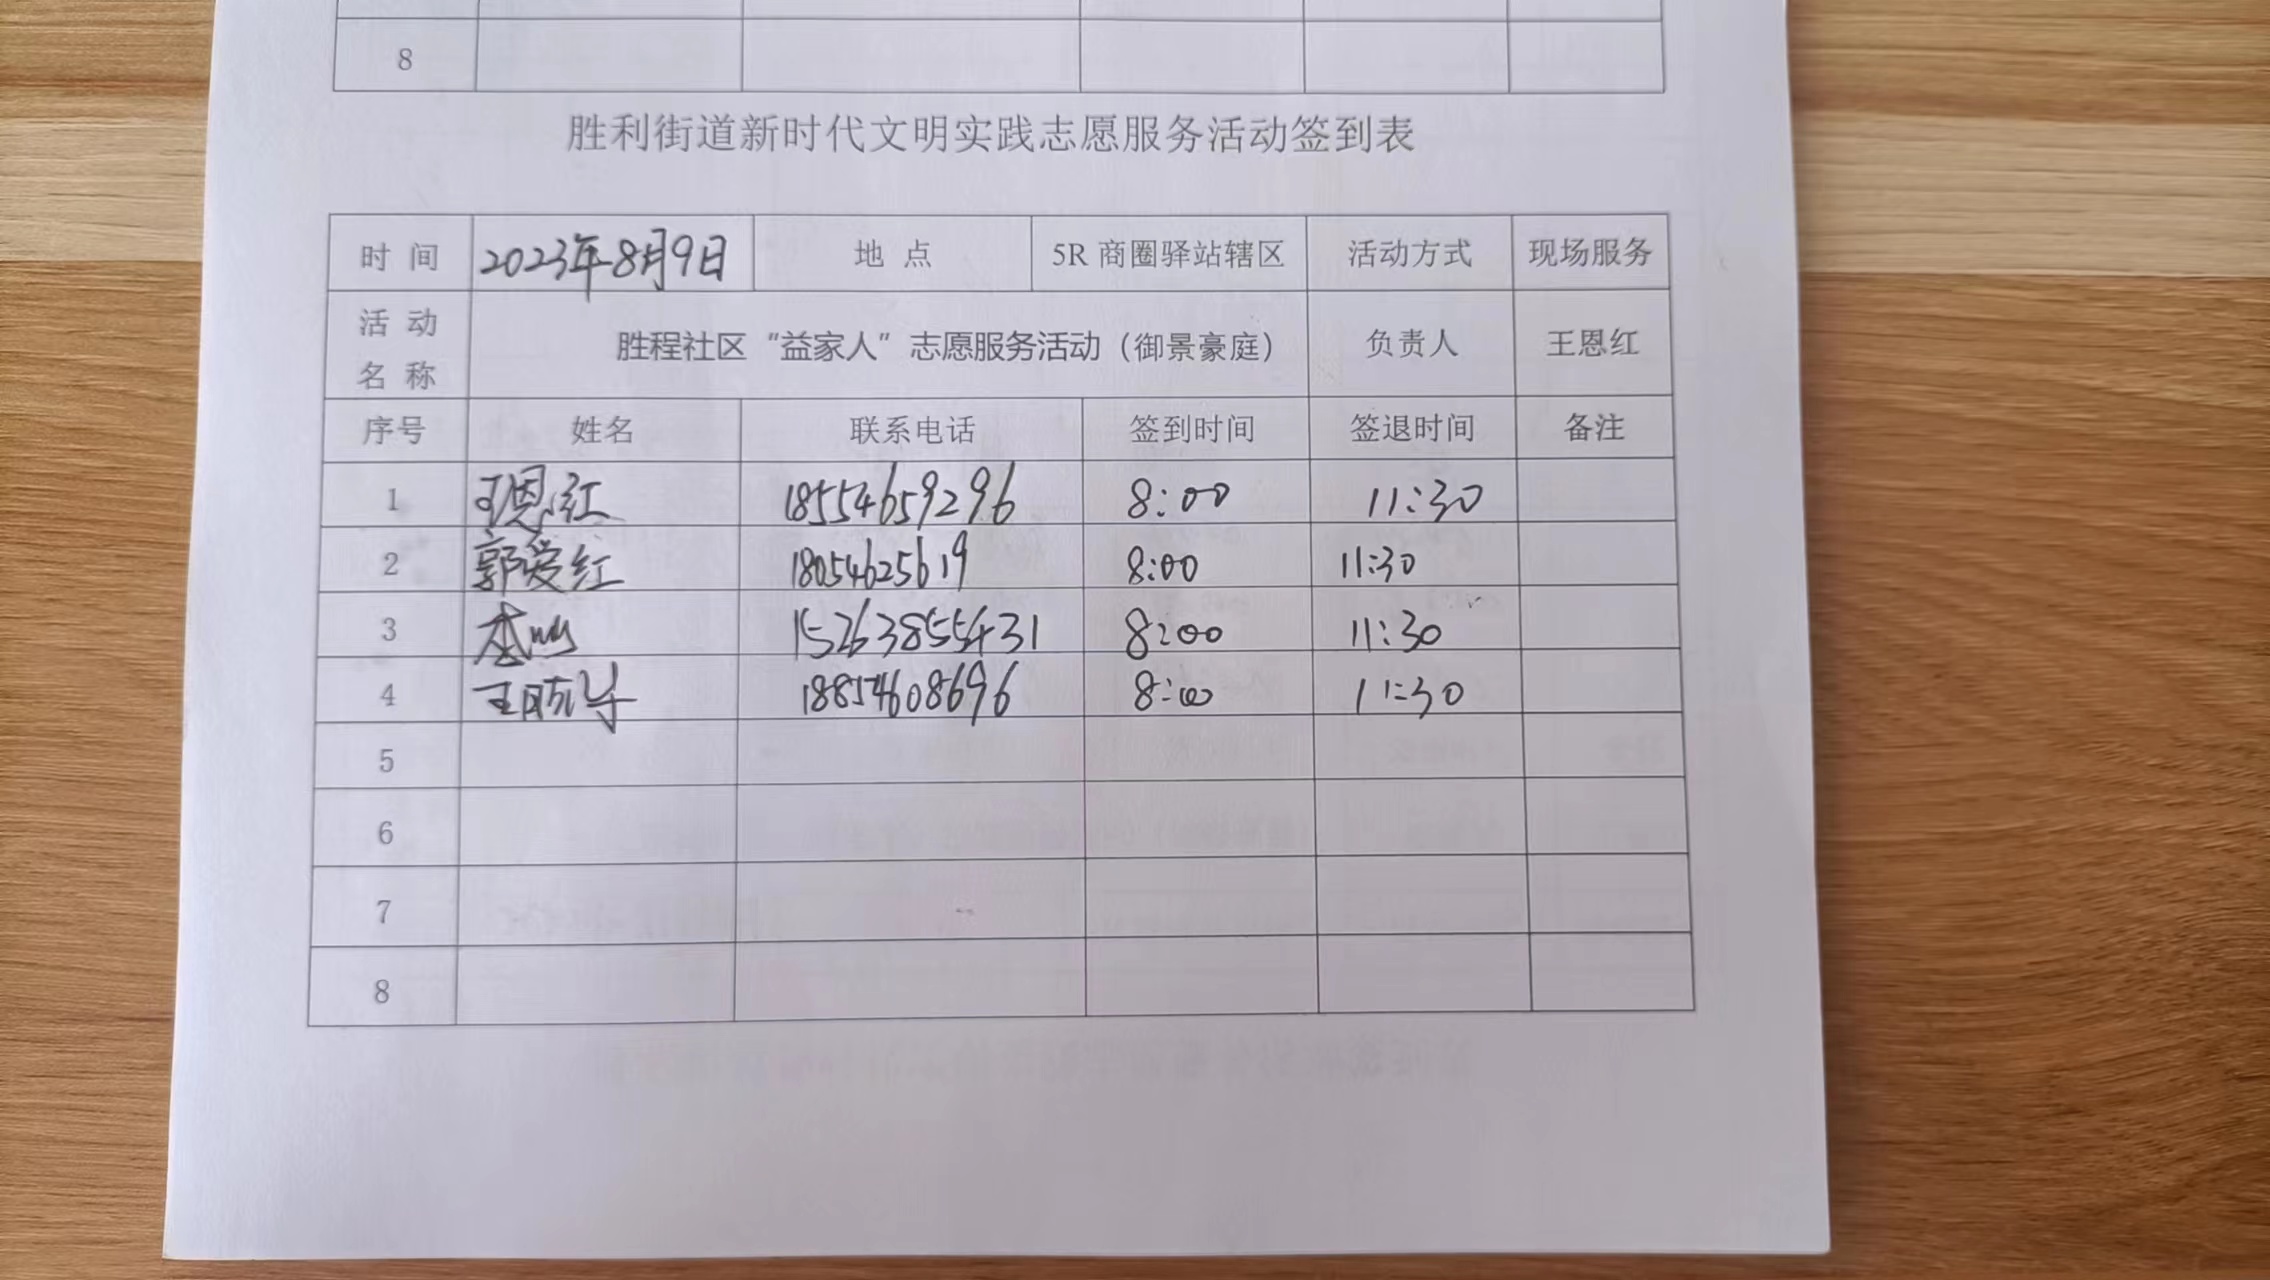 8
胜利街道新时代文明实践志愿服务活动签到表
时 间 2023年8月9日 地 点 5R 商圈驿站辖区 活动方式 现场服务
活 动
名 称 胜程社区“益家人”志愿服务活动（御景豪庭） 负责人 王恩红
序号 姓名 联系电话 签到时间 签退时间 备注
1 王恩红 18554659296 8:00 11:30
2 郭爱红 18054625619 8:00 11:30
3 15263855431 8:00 11:30
4 18854608696 8:00 11:30
5
6
7
8